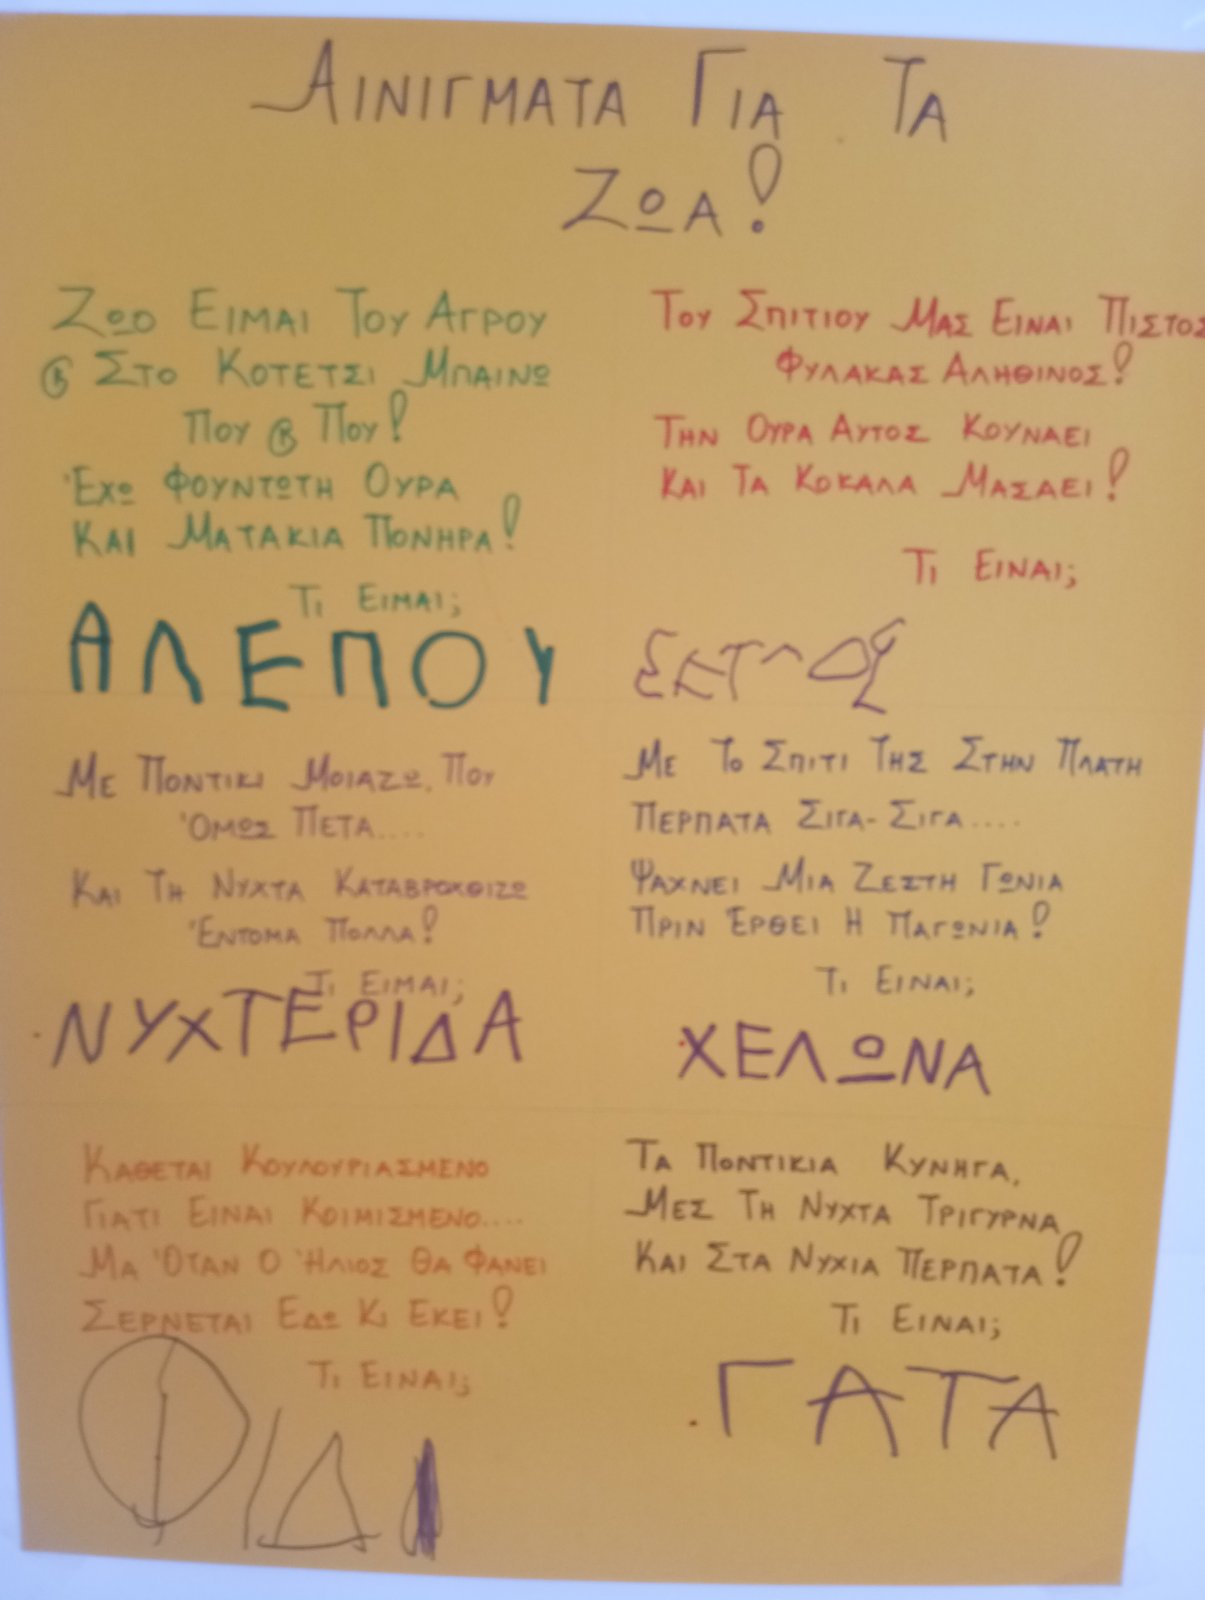 ΑΙΝΙΓΜΑΤΑ ΓΙΑ ΤΑ
ΖΩΑ!
ΖΩΟ ΕΙΜΑΙ ΤΟΥ ΑΓΡΟΥ
& ΣΤΟ ΚΟΤΕΤΣΙ ΜΠΑΙΝΩ
ΠΟΥ & ΠΟΥ!
ΈΧΩ ΦΟΥΝΤΩΤΗ ΟΥΡΑ
ΚΑΙ ΜΑΤΑΚΙΑ ΠΟΝΗΡΑ!
ΤΙ ΕΙΜΑΙ;
ΑΛΕΠΟΥ
ΤΟΥ ΣΠΙΤΙΟΥ ΜΑΣ ΕΙΝΑΙ ΠΙΣΤΟΣ
ΦΥΛΑΚΑΣ ΑΛΗΘΙΝΟΣ!
ΤΗΝ ΟΥΡΑ ΑΥΤΟΣ ΚΟΥΝΑΕΙ
ΚΑΙ ΤΑ ΚΟΚΑΛΑ ΜΑΣΑΕΙ!
ΤΙ ΕΙΝΑΙ;
ΜΕ ΠΟΝΤΙΚΙ ΜΟΙΑΖΩ, ΠΟΥ
ΌΜΩΣ ΠΕΤΑ....
ΚΑΙ ΤΗ ΝΥΧΤΑ ΚΑΤΑΒΡΟΧΘΙΖΩ
ΈΝΤΟΜΑ ΠΟΛΛΑ!
ΤΙ ΕΙΜΑΙ;
ΝΥΧΤΕΡΙΔΑ
ΜΕ ΤΟ ΣΠΙΤΙ ΤΗΣ ΣΤΗΝ ΠΛΑΤΗ
ΠΕΡΠΑΤΑ ΣΙΓΑ-ΣΙΓΑ....
ΨΑΧΝΕΙ ΜΙΑ ΖΕΣΤΗ ΓΩΝΙΑ
ΠΡΙΝ ΈΡΘΕΙ Η ΠΑΓΩΝΙΑ!
ΤΙ ΕΙΝΑΙ;
ΧΕΛΩΝΑ
ΚΑΘΕΤΑΙ ΚΟΥΛΟΥΡΙΑΣΜΕΝΟ
ΓΙΑΤΙ ΕΙΝΑΙ ΚΟΙΜΙΣΜΕΝΟ....
ΜΑ ΌΤΑΝ Ο ΉΛΙΟΣ ΘΑ ΦΑΝΕΙ
ΣΕΡΝΕΤΑΙ ΕΔΩ ΚΙ ΕΚΕΙ!
ΤΙ ΕΙΝΑΙ;
ΦΙΔΙ
ΤΑ ΠΟΝΤΙΚΙΑ ΚΥΝΗΓΑ,
ΜΕΣ ΤΗ ΝΥΧΤΑ ΤΡΙΓΥΡΝΑ
ΚΑΙ ΣΤΑ ΝΥΧΙΑ ΠΕΡΠΑΤΑ!
ΤΙ ΕΙΝΑΙ;
ΓΑΤΑ